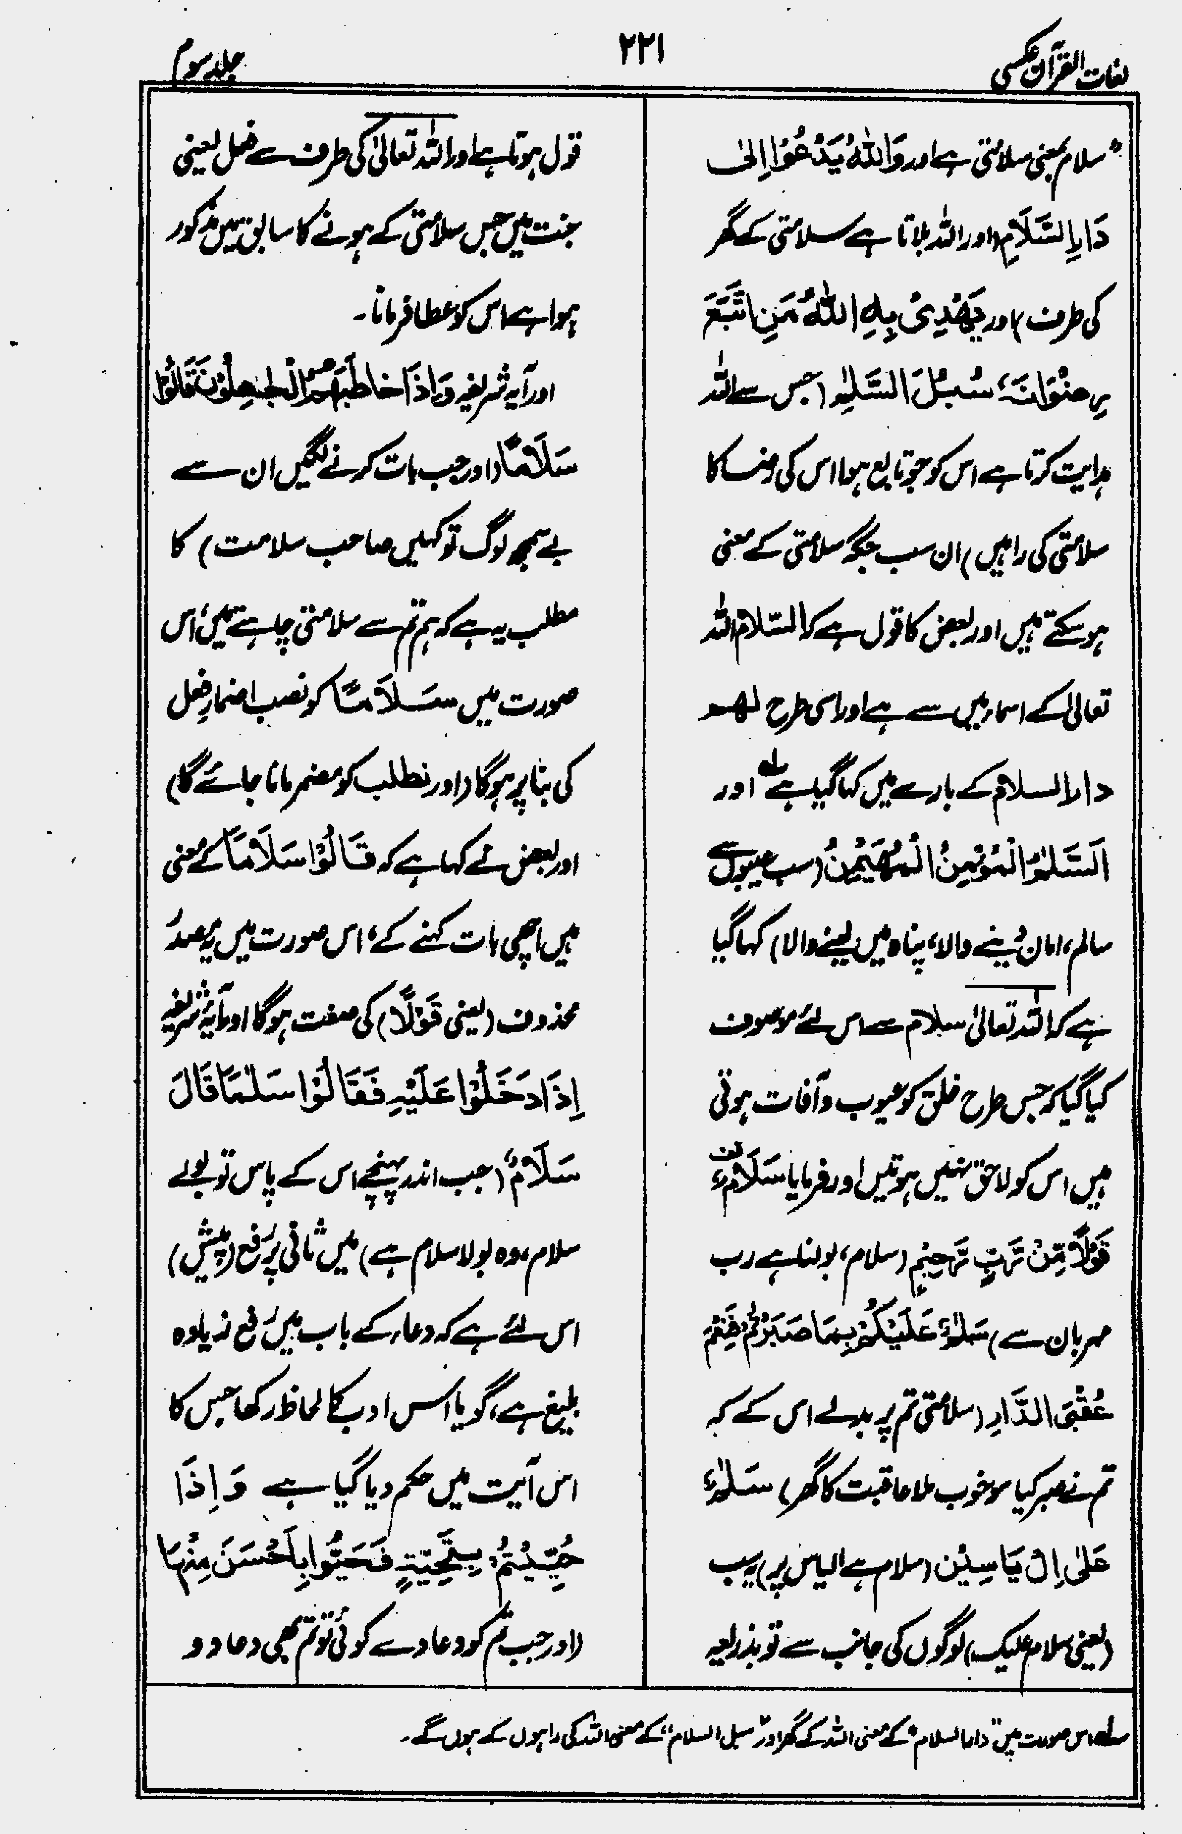 لغات القرآن عکسی
۲۲۱
جلد سوم
سلام بمعنی سلامتی ہے اور وَاللّٰہُ یَدْعُوْا اِلیٰ
دَارِ السَّلَامِ (اور اللہ بلاتا ہے سلامتی کے گھر
کی طرف) اور یَھْدِیْ بِہِ اللّٰہُ مَنِ اتَّبَعَ
رِضْوَانَہٗ سُبُلَ السَّلٰمِ (جس سے اللہ
ہدایت کرتا ہے اس کو جو تابع ہوا اس کی رضا کا
سلامتی کی راہیں) ان سب جگہ سلامتی کے معنی
ہو سکتے ہیں اور بعض کا قول ہے کہ السّلام اللہ
تعالیٰ کے اسماء میں سے ہے اور اسی طرح لھم
دار السلام کے بارے میں کہا گیا ہے لہ اور
اَلسَّلٰمُ الْمُؤْمِنُ الْمُھَیْمِنُ (سب عیبوں سے
سالم، امان دینے والا، پناہ میں لینے والا) کہا گیا
ہے کہ اللہ تعالیٰ سلام سے اس لئے موصوف
کیا گیا کہ جس طرح خلق کو عیوب و آفات ہوتی
ہیں اس کو لاحق نہیں ہوتیں اور فرمایا سَلَامٌ
قَوْلًا مِّنْ رَّبٍّ رَّحِیْمٍ (سلام، بولنا ہے رب
مہربان سے) سَلٰمٌ عَلَیْکُمْ بِمَا صَبَرْتُمْ فَنِعْمَ
عُقْبَی الدَّارِ (سلامتی تم پر بدلے اس کے کہ
تم نے صبر کیا سو خوب ملا عاقبت کا گھر) سَلٰمٌ
عَلٰی اِلْ یَاسِیْن (سلام ہے الیاس پر) یہ سب
(یعنی سلام علیک) لوگوں کی جانب سے تو بذریعہ
قول ہوتا ہے اور اللہ تعالیٰ کی طرف سے فعل یعنی
جنت میں جس سلامتی کے ہونے کا سابق میں مذکور
ہوا ہے اس کو عطا فرمانا۔
اور آیہ شریفہ وَاِذَا خَاطَبَھُمُ الْجٰھِلُوْنَ قَالُوْا
سَلَامًا (اور جب بات کرنے لگیں ان سے
بے سمجھ لوگ تو کہیں صاحب سلامت) کا
مطلب یہ ہے کہ ہم تم سے سلامتی چاہتے ہیں، اس
صورت میں سَلَامًا کو نصب اضمارِ فعل
کی بنا پر ہوگا (اور نطلب کو مضمر مانا جائے گا)
اور بعض نے کہا ہے کہ قَالُوْا سَلَامًا کے معنی
ہیں اچھی بات کہنے کے، اس صورت میں یہ مصدر
محذوف (یعنی قَوْلًا) کی صفت ہوگا اور آیۂ شریفہ
اِذَا دَخَلُوْا عَلَیْہِ فَقَالُوْا سَلٰمًا قَالَ
سَلَامٌ (جب اندر پہنچے اس کے پاس تو بولے
سلام، وہ بولا سلام ہے) میں ثانی پر رفع (پیش)
اس لئے ہے کہ دعاء کے باب میں رفع زیادہ
بلیغ ہے، گویا اس ادب کا لحاظ رکھا جس کا
اس آیت میں حکم دیا گیا ہے وَاِذَا
حُیِّیْتُمْ بِتَحِیَّۃٍ فَحَیُّوْا بِاَحْسَنَ مِنْھَا
(اور جب تم کو دعا دے کوئی تو تم بھی دعا دو
لہ اس صورت میں "دار السلام" کے معنی اللہ کے گھر اور "سبل السلام" کے معنی اللہ کی راہوں کے ہوں گے۔